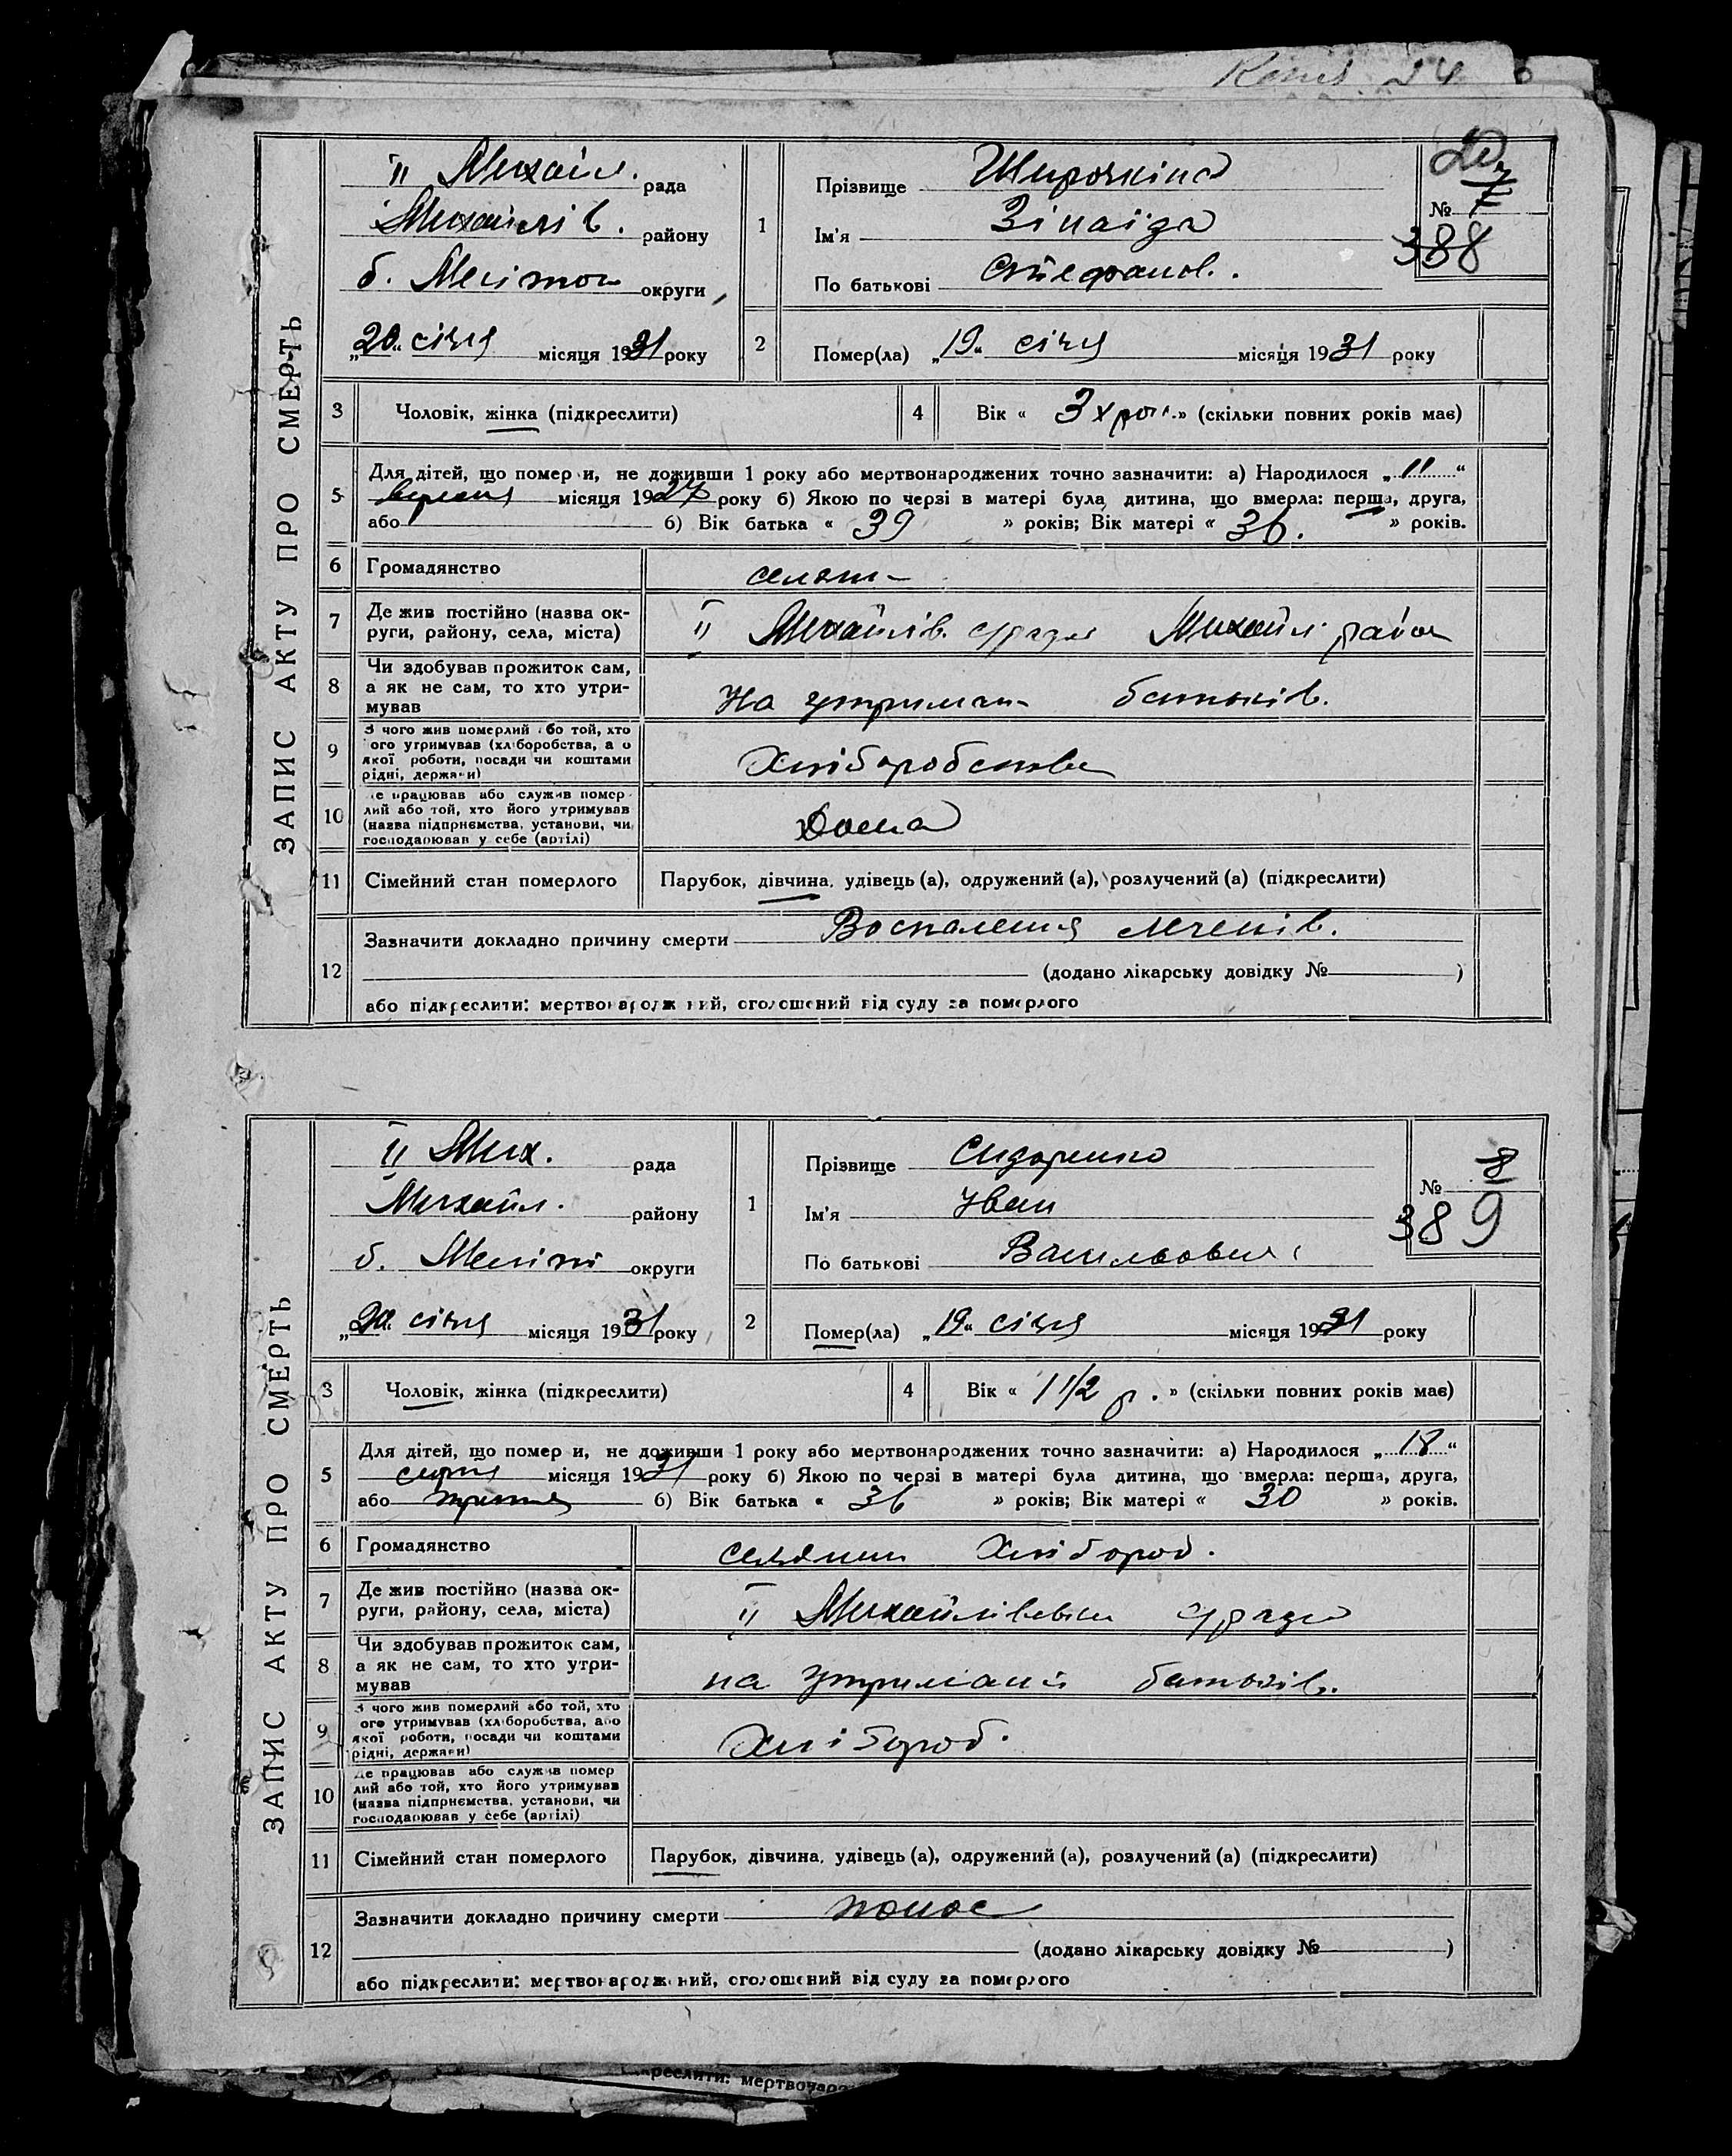 ЗАПИС АКТУ ПРО СМЕРТЬ
ІІ Михайл. рада
Михайлів. району
б. Меліт округи
„20“ січня місяця 1931 року
1
Прізвище Широчкіна
Ім'я Зінаїда
По батькові Стефанов.
№ 7
388
2 Помер(ла) „19“ січня місяця 1931 року
3 Чоловік, жінка (підкреслити)
4 Вік « 3 х рок. » (скільки повних років має)
5 Для дітей, що померли, не доживши 1 року або мертвонароджених точно зазначити: а) Народилося „11“
вересня місяця 1927 року б) Якою по черзі в матері була дитина, що вмерла: перша, друга,
або б) Вік батька « 39 » років; Вік матері « 36. » років.
6 Громадянство селян-
7 Де жив постійно (назва округи, району, села, міста) ІІ Михайлів. с/рада Михайл район
8 Чи здобував прожиток сам,
а як не сам, то хто утри-
мував На утриман- батьків.
9 З чого жив померлий або той, хто
його утримував (хліборобства, або
якої роботи, посади чи коштами
рідні, держави) Хліборобство
10 Де працював або служив помер-
лий або той, хто його утримував
(назва підприємства, установи, чи
господарював у себе (артілі) Дома
11 Сімейний стан померлого Парубок, дівчина, удівець (а), одружений (а), розлучений (а) (підкреслити)
12 Зазначити докладно причину смерти Воспаления легенів.
(додано лікарську довідку № )
або підкреслити: мертвонароджений, оголошений від суду за померлого
ЗАПИС АКТУ ПРО СМЕРТЬ
ІІ Мих. рада
Михайл. району
б. Меліт округи
„20“ січня місяця 1931 року
1
Прізвище Сидоренко
Ім'я Иван
По батькові Васильович
№ 8
389
2 Помер(ла) „19“ січня місяця 1931 року
3 Чоловік, жінка (підкреслити)
4 Вік « 1 1/2 р. » (скільки повних років має)
5 Для дітей, що померли, не доживши 1 року або мертвонароджених точно зазначити: а) Народилося „18“
серпня місяця 19 року б) Якою по черзі в матері була дитина, що вмерла: перша, друга,
або третя б) Вік батька « 36 » років; Вік матері « 30 » років.
6 Громадянство селянин Хлібороб.
7 Де жив постійно (назва ок-
руги, району, села, міста) ІІ Михайлівська с/рада
8 Чи здобував прожиток сам,
а як не сам, то хто утри-
мував на утримані батьків.
9 З чого жив померлий або той, хто
його утримував (хліборобства, або
якої роботи, посади чи коштами
рідні, держави) Хлібороб.
10 Де працював або служив помер
лий або той, хто його утримував
(назва підприємства, установи, чи
господарював у себе (артілі)
11 Сімейний стан померлого Парубок, дівчина, удівець (а), одружений (а), розлучений (а) (підкреслити)
12 Зазначити докладно причину смерти понос
(додано лікарську довідку № )
або підкреслити: мертвонароджений, оголошений від суду за померлого